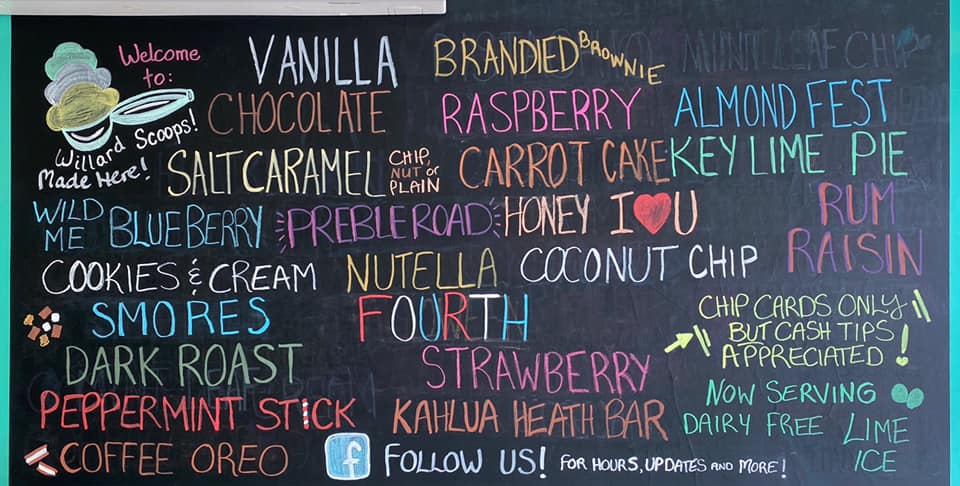 Welcome to:
Willard Scoops!
Made Here!
VANILLA
BRANDIED BROWNIE
CHOCOLATE
RASPBERRY
ALMOND FEST
SALT CARAMEL CHIP, NUT OR PLAIN
CARROT CAKE
KEY LIME PIE
WILD ME BLUEBERRY
PREBLE ROAD
HONEY I U
RUM RAISIN
COOKIES & CREAM
NUTELLA
COCONUT CHIP
SMORES
FOURTH
CHIP CARDS ONLY
BUT CASH TIPS
APPRECIATED!
DARK ROAST
STRAWBERRY
NOW SERVING
DAIRY FREE LIME
ICE
PEPPERMINT STICK
KAHLUA HEATH BAR
COFFEE OREO
f FOLLOW US! FOR HOURS, UPDATES AND MORE!